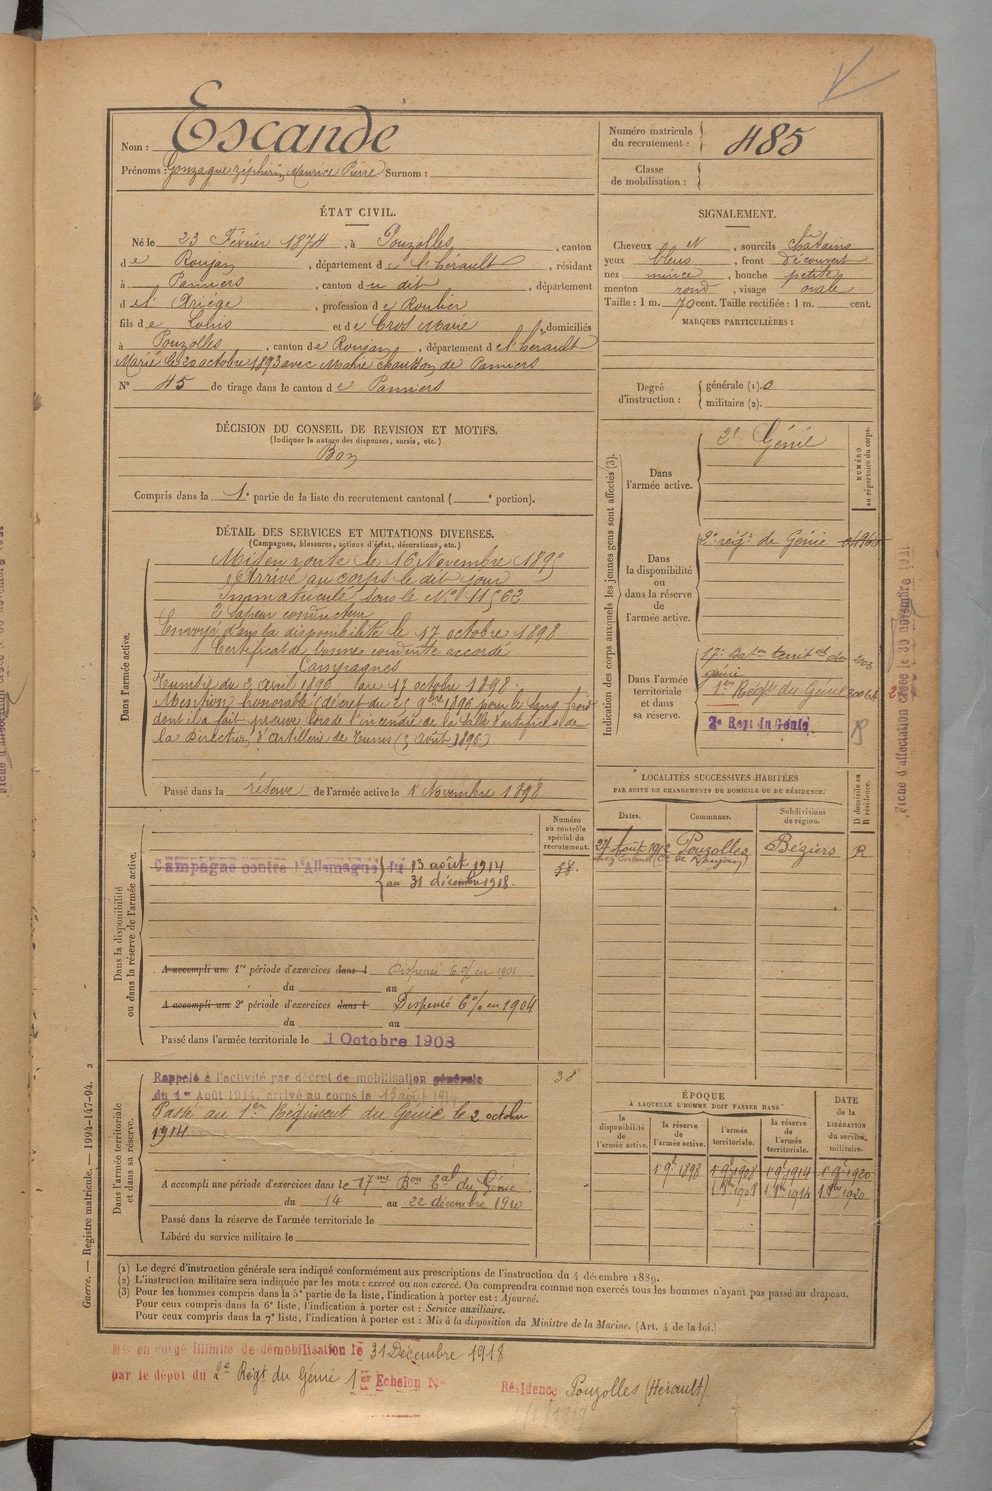 Nom : Escande
Prénoms : Gonzague Zéphirin Maurice Pierre Surnom :
Numéro matricule du recrutement : 485
Classe de mobilisation :
ÉTAT CIVIL.
Né le 23 Février 1874, à Pouzolles, canton
de Roujan, département de l'Hérault, résidant
à Pamiers, canton du dit, département
de l'Ariège, profession de Roulier
fils de Louis et de Cros Marie, domiciliés
à Pouzolles, canton de Roujan, département de l'hérault
Marié le 20 octobre 1893 avec Marie de Pamiers
N° 45 de tirage dans le canton de Pamiers
SIGNALEMENT.
Cheveux N, sourcils châtains
yeux bleus, front découvert
nez mince, bouche petite
menton rond, visage ovale
Taille : 1 m. 70 cent. Taille rectifiée : 1 m. cent.
MARQUES PARTICULIÈRES :
Degré d'instruction : générale (1). 0
militaire (2).
DÉCISION DU CONSEIL DE REVISION ET MOTIFS.
(Indiquer la nature des dispenses, sursis, etc.)
Bon
Compris dans la 1e partie de la liste du recrutement cantonal ( e portion).
DÉTAIL DES SERVICES ET MUTATIONS DIVERSES.
(Campagnes, blessures, actions d'éclat, décorations, etc.)
Dans l'armée active.
Mis en route le 16 Novembre 1895
Arrivé au corps le dit jour
Immatriculé sous le N° 11562
2e sapeur conducteur
Envoyé dans la disponibilité le 17 octobre 1898
Certificat de bonne conduite accordé
Campagnes
Tunisie du 2 Avril 1896 au 17 octobre 1898.
Mention honorable (décret du 25 9bre 1896 pour le sang froid
dont il a fait preuve lors de l'incendie de la salle d'artifices de
la Direction d'Artillerie de Tunis (5 août 1896)
Passé dans la réserve de l'armée active le 1er Novembre 1898
Indication des corps auxquels les jeunes gens sont affectés (3).
NUMÉRO au répertoire du corps.
Dans l'armée active.
2e Génie
Dans la disponibilité ou dans la réserve de l'armée active.
2e régt de Génie
Dans l'armée territoriale et dans sa réserve.
17e Baton territal du génie
1er Régt du Génie
2e Regt du Génie
R
LOCALITÉS SUCCESSIVES HABITÉES
PAR SUITE DE CHANGEMENTS DE DOMICILE OU DE RÉSIDENCE.
Dates. Communes. Subdivisions de région. D domicile ou R résidence.
27 Août 1912 Pouzolles Béziers R
(Con de Roujan)
Dans la disponibilité ou dans la réserve de l'armée active.
Numéro au contrôle spécial du recrutement.
Campagne contre l'Allemagne du 13 août 1914
au 31 décembre 1918.
A accompli une 1re période d'exercices dans l Dispensé 6% en 1901
du au
A accompli une 2e période d'exercices dans l Dispensé 6% en 1904
du au
Passé dans l'armée territoriale le 1 Octobre 1908
Dans l'armée territoriale et dans sa réserve.
Rappelé à l'activité par décret de mobilisation générale
du 1er Août 1914, arrivé au corps le 13 août 1914
38
Passé au 1er Régiment du Génie le 2 octobre
1914
A accompli une période d'exercices dans le 17me Bon Tal du Génie
du 14 au 22 décembre 1910
Passé dans la réserve de l'armée territoriale le
Libéré du service militaire le
ÉPOQUE
À LAQUELLE L'HOMME DOIT PASSER DANS
la disponibilité de l'armée active. la réserve de l'armée active. l'armée territoriale. la réserve de l'armée territoriale. DATE de la LIBÉRATION du service militaire.
1 9b 1898 1 9b 1908 1 9b 1914 1 9b 1920
1 8bre 1908 1 8bre 1914 1 8bre 1920
(1) Le degré d'instruction générale sera indiqué conformément aux prescriptions de l'instruction du 4 décembre 1889.
(2) L'instruction militaire sera indiquée par les mots : exercé ou non exercé. On comprendra comme non exercés tous les hommes n'ayant pas passé au drapeau.
(3) Pour les hommes compris dans la 5e partie de la liste, l'indication à porter est : Ajourné.
Pour ceux compris dans la 6e liste, l'indication à porter est : Service auxiliaire.
Pour ceux compris dans la 7e liste, l'indication à porter est : Mis à la disposition du Ministre de la Marine. (Art. 4 de la loi.)
Guerre. — Registre matricule. — 1994-147-94. 2
Mis en congé illimité de démobilisation le 31 Décembre 1918
par le dépôt du 2e Régt du Génie 1er Echelon N°
Résidence Pouzolles (Hérault)
Fiche d'affectation créée le 30 novembre